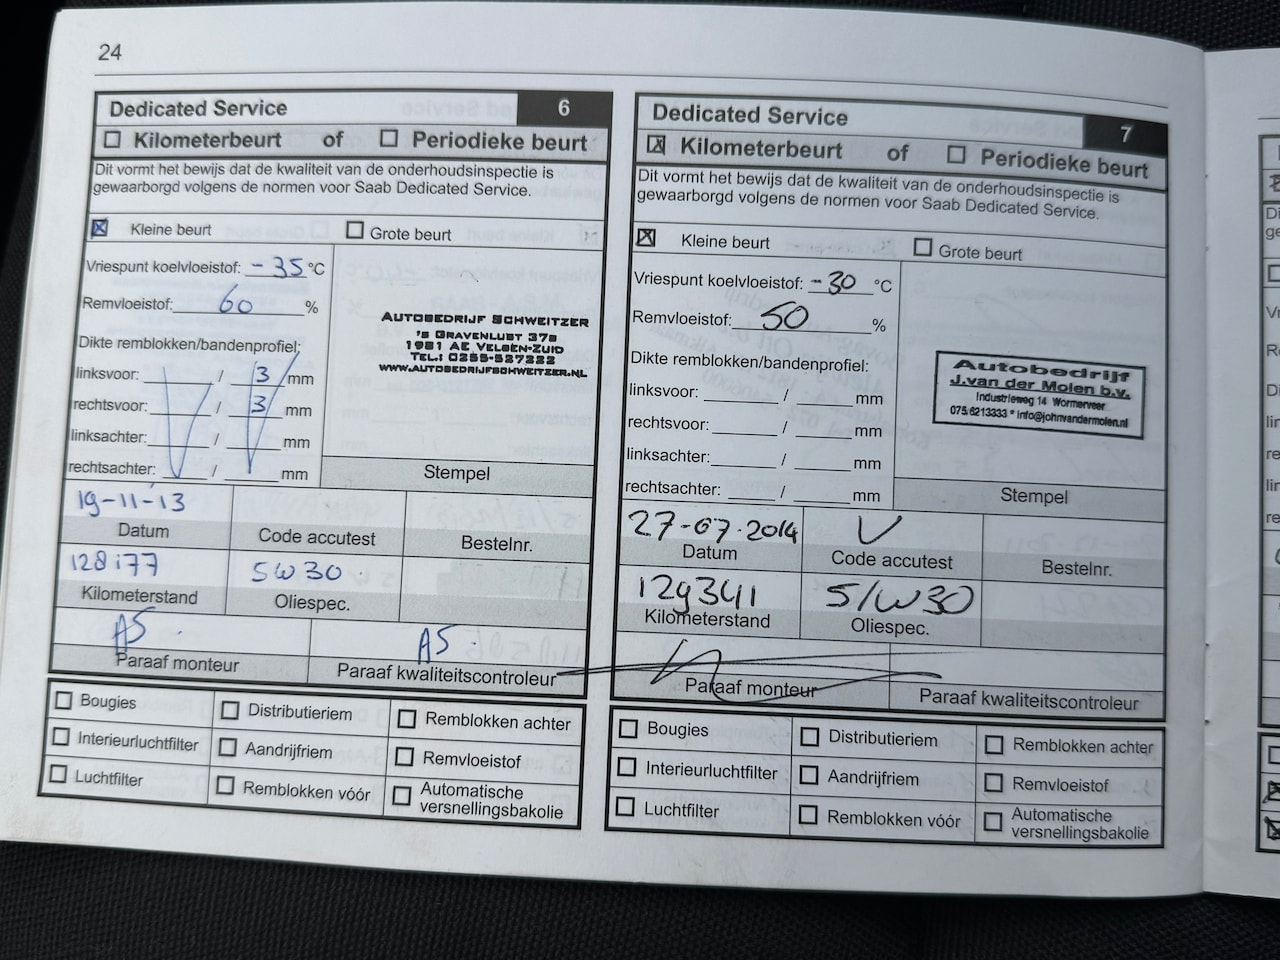 24
Dedicated Service 6
Kilometerbeurt of Periodieke beurt
Dit vormt het bewijs dat de kwaliteit van de onderhoudsinspectie is
gewaarborgd volgens de normen voor Saab Dedicated Service.
Kleine beurt Grote beurt
Vriespunt koelvloeistof: -35 °C
Remvloeistof: 60 %
Dikte remblokken/bandenprofiel:
linksvoor: / 3 mm
rechtsvoor: / 3 mm
linksachter: / mm
rechtsachter: / mm
AUTOBEDRIJF SCHWEITZER
'S GRAVENLUST 37A
1981 AE VELSEN-ZUID
TEL.: 0255-527222
WWW.AUTOBEDRIJFSCHWEITZER.NL
Stempel
19-11-13
Datum Code accutest Bestelnr.
128177 5W30
Kilometerstand Oliespec.
AS AS
Paraaf monteur Paraaf kwaliteitscontroleur
Bougies Distributieriem Remblokken achter
Interieurluchtfilter Aandrijfriem Remvloeistof
Luchtfilter Remblokken vóór Automatische
versnellingsbakolie
Dedicated Service 7
Kilometerbeurt of Periodieke beurt
Dit vormt het bewijs dat de kwaliteit van de onderhoudsinspectie is
gewaarborgd volgens de normen voor Saab Dedicated Service.
Kleine beurt Grote beurt
Vriespunt koelvloeistof: -30 °C
Remvloeistof: 50 %
Dikte remblokken/bandenprofiel:
linksvoor: / mm
rechtsvoor: / mm
linksachter: / mm
rechtsachter: / mm
Autobedrijf
J.van der Molen b.v.
Industrieweg 14 Wormerveer
075.6213333 * info@johnvandermolen.nl
Stempel
27-07-2014 V
Datum Code accutest Bestelnr.
129341 5/W30
Kilometerstand Oliespec.
Paraaf monteur Paraaf kwaliteitscontroleur
Bougies Distributieriem Remblokken achter
Interieurluchtfilter Aandrijfriem Remvloeistof
Luchtfilter Remblokken vóór Automatische
versnellingsbakolie